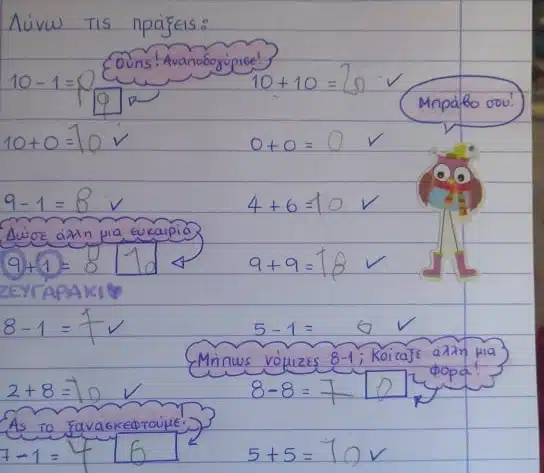 Λύνω τις πράξεις:
Ουπς! Αναποδογύρισε!
10 - 1 = 9
10 + 10 = 20 ✓
Μπράβο σου!
10 + 0 = 10 ✓
0 + 0 = 0 ✓
9 - 1 = 8 ✓
4 + 6 = 10 ✓
Δώσε άλλη μια ευκαιρία
9 + 1 = 8 10
9 + 9 = 18 ✓
ΖΕΥΓΑΡΑΚΙ
8 - 1 = 7 ✓
5 - 1 = ✓
Μήπως νόμιζες 8-1; Κοίταξε άλλη μια φορά!
2 + 8 = 10 ✓
8 - 8 = 7 0
Ας το ξανασκεφτούμε!
7 - 1 = 4 6
5 + 5 = 10 ✓